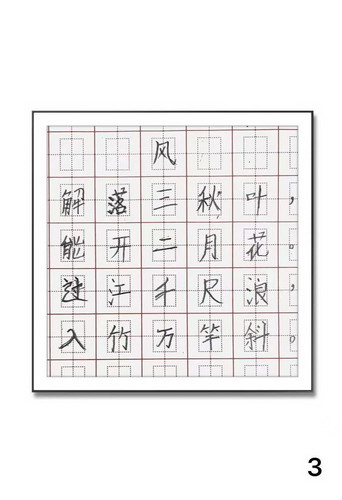 风
解落三秋叶，
能开二月花。
过江千尺浪，
入竹万竿斜。
3